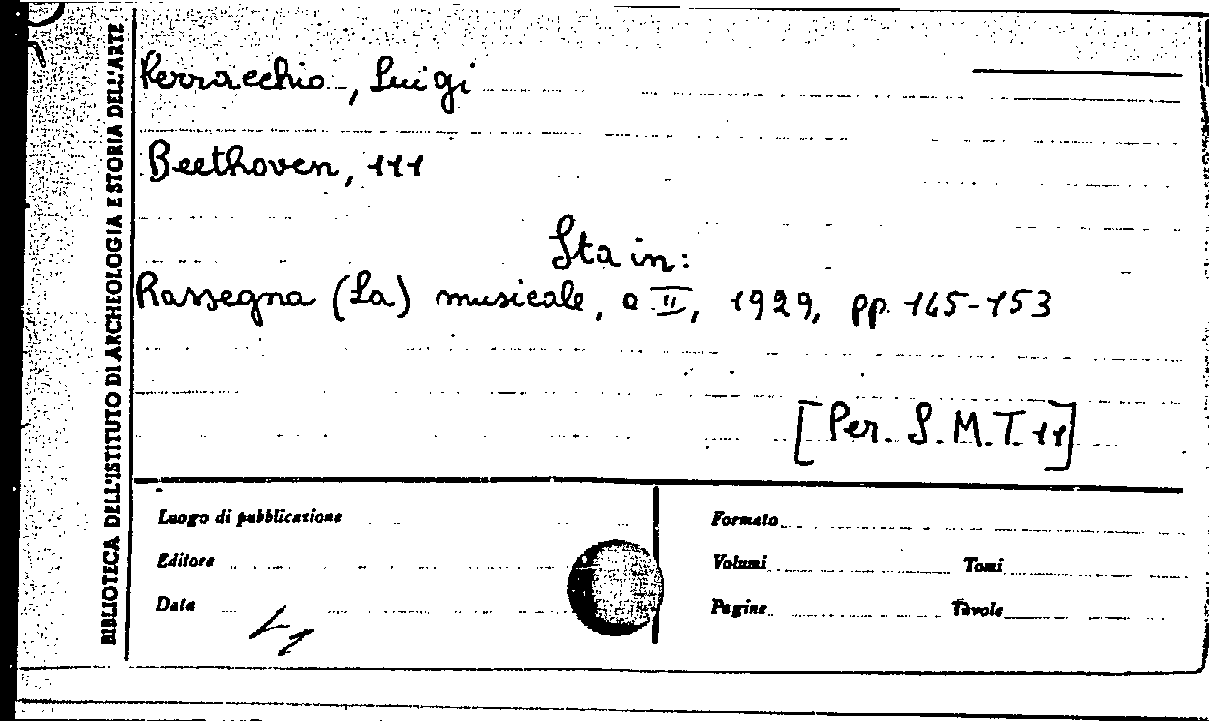 BIBLIOTECA DELL'ISTITUTO DI ARCHEOLOGIA E STORIA DELL'ARTE
Perracchio, Luigi
Beethoven, 111
Sta in:
Rassegna (La) musicale, a II, 1929, pp. 145-153
[Per. S.M.T. 11]
Luogo di pubblicazione
Editore
Data
Formato
Volumi Tomi
Pagine Tavole